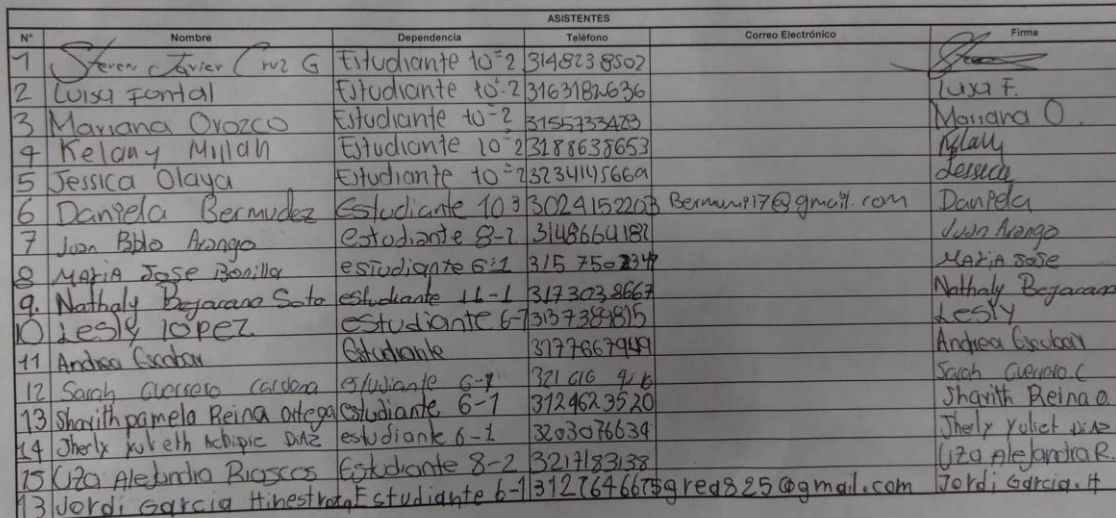 ASISTENTES
N° Nombre Dependencia Teléfono Correo Electrónico Firma
1 Steven Javier Cruz G Estudiante 10-2 3148238502
2 Luisa Fontal Estudiante 10-2 3163182636 Luisa F.
3 Mariana Orozco Estudiante 10-2 3155733423 Mariana O.
4 Kelany Millan Estudiante 10-2 3188638653 Kelany
5 Jessica Olaya Estudiante 10-2 3234145669 Jessica
6 Daniela Bermudez Estudiante 10 3 3024152203 Bermumi17@gmail.com Daniela
7 Juan Pablo Arango estudiante 8-2 3148664182 Juan Arango
8 MARIA Jose Bonilla estudiante 6-1 315 750 2347 MARIA JOSE
9. Nathaly Bejarano Soto estudiante 11-1 3173038667 Nathaly Bejarano
10 Lesly lopez estudiante 6-1 3137389815 Lesly
11 Andrea Escobar Estudiante 3177667949 Andrea Escobar
12 Sarah Guerrero Cardona estudiante 6-1 321 616 Sarah Guerrero C
13 Sharith pamela Reina ortega estudiante 6-1 3124623520 Sharith Reina o.
14 Sherly Yulieth DIAZ estudiante 6-1 3203076634 Sherly Yuliet DIAZ
15 Liza Alejandra Riascos Estudiante 8-2 3217183138 Liza Alejandra R.
13 Jordi Garcia Hinestroza Estudiante 6-1 3127646675 greg825@gmail.com Jordi Garcia. H